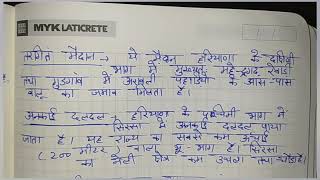 MYK LATICRETE
तरंगित मैदान → ये मैदान हरियाणा के दक्षिणी
भाग में मुख्यतः महेन्द्रगढ़ रेवाड़ी
तथा गुड़गांव में अरावली पहाड़ियों के आस-पास
बालू का जमाव मिलता है।
अनकाई दलदल → हरियाणा के पश्चिमी भाग में
सिरसा में अनकाई दलदल पाया
जाता है। यह राज्य का सबसे कम ऊंचाई
(200 मीटर) वाला भू-भाग है। सिरसा
का क्षेत्र कम उथला तथा चौड़ा है।